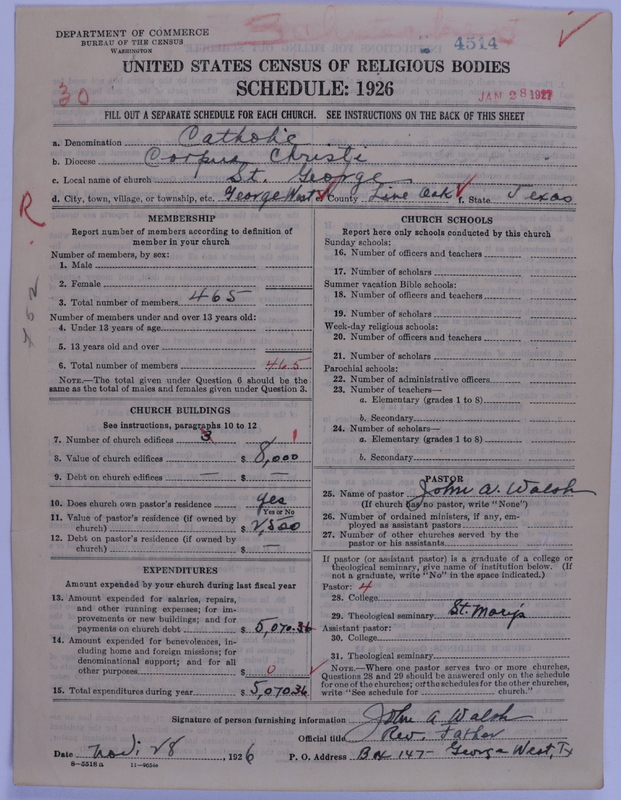 DEPARTMENT OF COMMERCE
BUREAU OF THE CENSUS
WASHINGTON
4514
UNITED STATES CENSUS OF RELIGIOUS BODIES
SCHEDULE: 1926
30
JAN 28 1927
FILL OUT A SEPARATE SCHEDULE FOR EACH CHURCH. SEE INSTRUCTIONS ON THE BACK OF THIS SHEET
a. Denomination Catholic
b. Diocese Corpus Christi
c. Local name of church St. George
d. City, town, village, or township, etc. George West County Live Oak f. State Texas
R
MEMBERSHIP
Report number of members according to definition of
member in your church
Number of members, by sex:
1. Male
2. Female
3. Total number of members 465
Number of members under and over 13 years old:
4. Under 13 years of age
5. 13 years old and over
6. Total number of members 465
NOTE.—The total given under Question 6 should be the
same as the total of males and females given under Question 3.
CHURCH BUILDINGS
See instructions, paragraphs 10 to 12
7. Number of church edifices 3 1
8. Value of church edifices $ 8,000
9. Debt on church edifices — $ —
10. Does church own pastor's residence yes
Yes or No
11. Value of pastor's residence (if owned by
church) $ 2,500
12. Debt on pastor's residence (if owned by
church) $ —
EXPENDITURES
Amount expended by your church during last fiscal year
13. Amount expended for salaries, repairs,
and other running expenses; for im-
provements or new buildings; and for
payments on church debt $ 5,070.36
14. Amount expended for benevolences, in-
cluding home and foreign missions; for
denominational support; and for all
other purposes $ 0
15. Total expenditures during year $ 5,070.36
CHURCH SCHOOLS
Report here only schools conducted by this church
Sunday schools:
16. Number of officers and teachers
17. Number of scholars
Summer vacation Bible schools:
18. Number of officers and teachers
19. Number of scholars
Week-day religious schools:
20. Number of officers and teachers
21. Number of scholars
Parochial schools:
22. Number of administrative officers
23. Number of teachers—
a. Elementary (grades 1 to 8)
b. Secondary
24. Number of scholars—
a. Elementary (grades 1 to 8)
b. Secondary
PASTOR
25. Name of pastor John A. Walsh
(If church has no pastor, write "None")
26. Number of ordained ministers, if any, em-
ployed as assistant pastors
27. Number of other churches served by the
pastor or his assistants
If pastor (or assistant pastor) is a graduate of a college or
theological seminary, give name of institution below. (If
not a graduate, write "No" in the space indicated.)
Pastor: 4
28. College
29. Theological seminary St. Marys
Assistant pastor:
30. College
31. Theological seminary
NOTE.—Where one pastor serves two or more churches,
Questions 28 and 29 should be answered only on the schedule
for one of the churches; on the schedules for the other churches,
write "See schedule for church."
Signature of person furnishing information John A Walsh
Official title Rev. Father
Date Nov. 28, 1926 P. O. Address Box 147 - George West, Tx
8-5518a